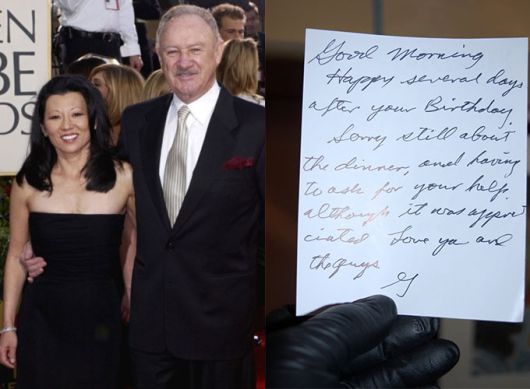 EN
BE
RDS
Good Morning
Happy several days
after your Birthday.
Sorry still about
the dinner, and having
to ask for your help
although it was appre-
ciated Love ya and
the guys
G